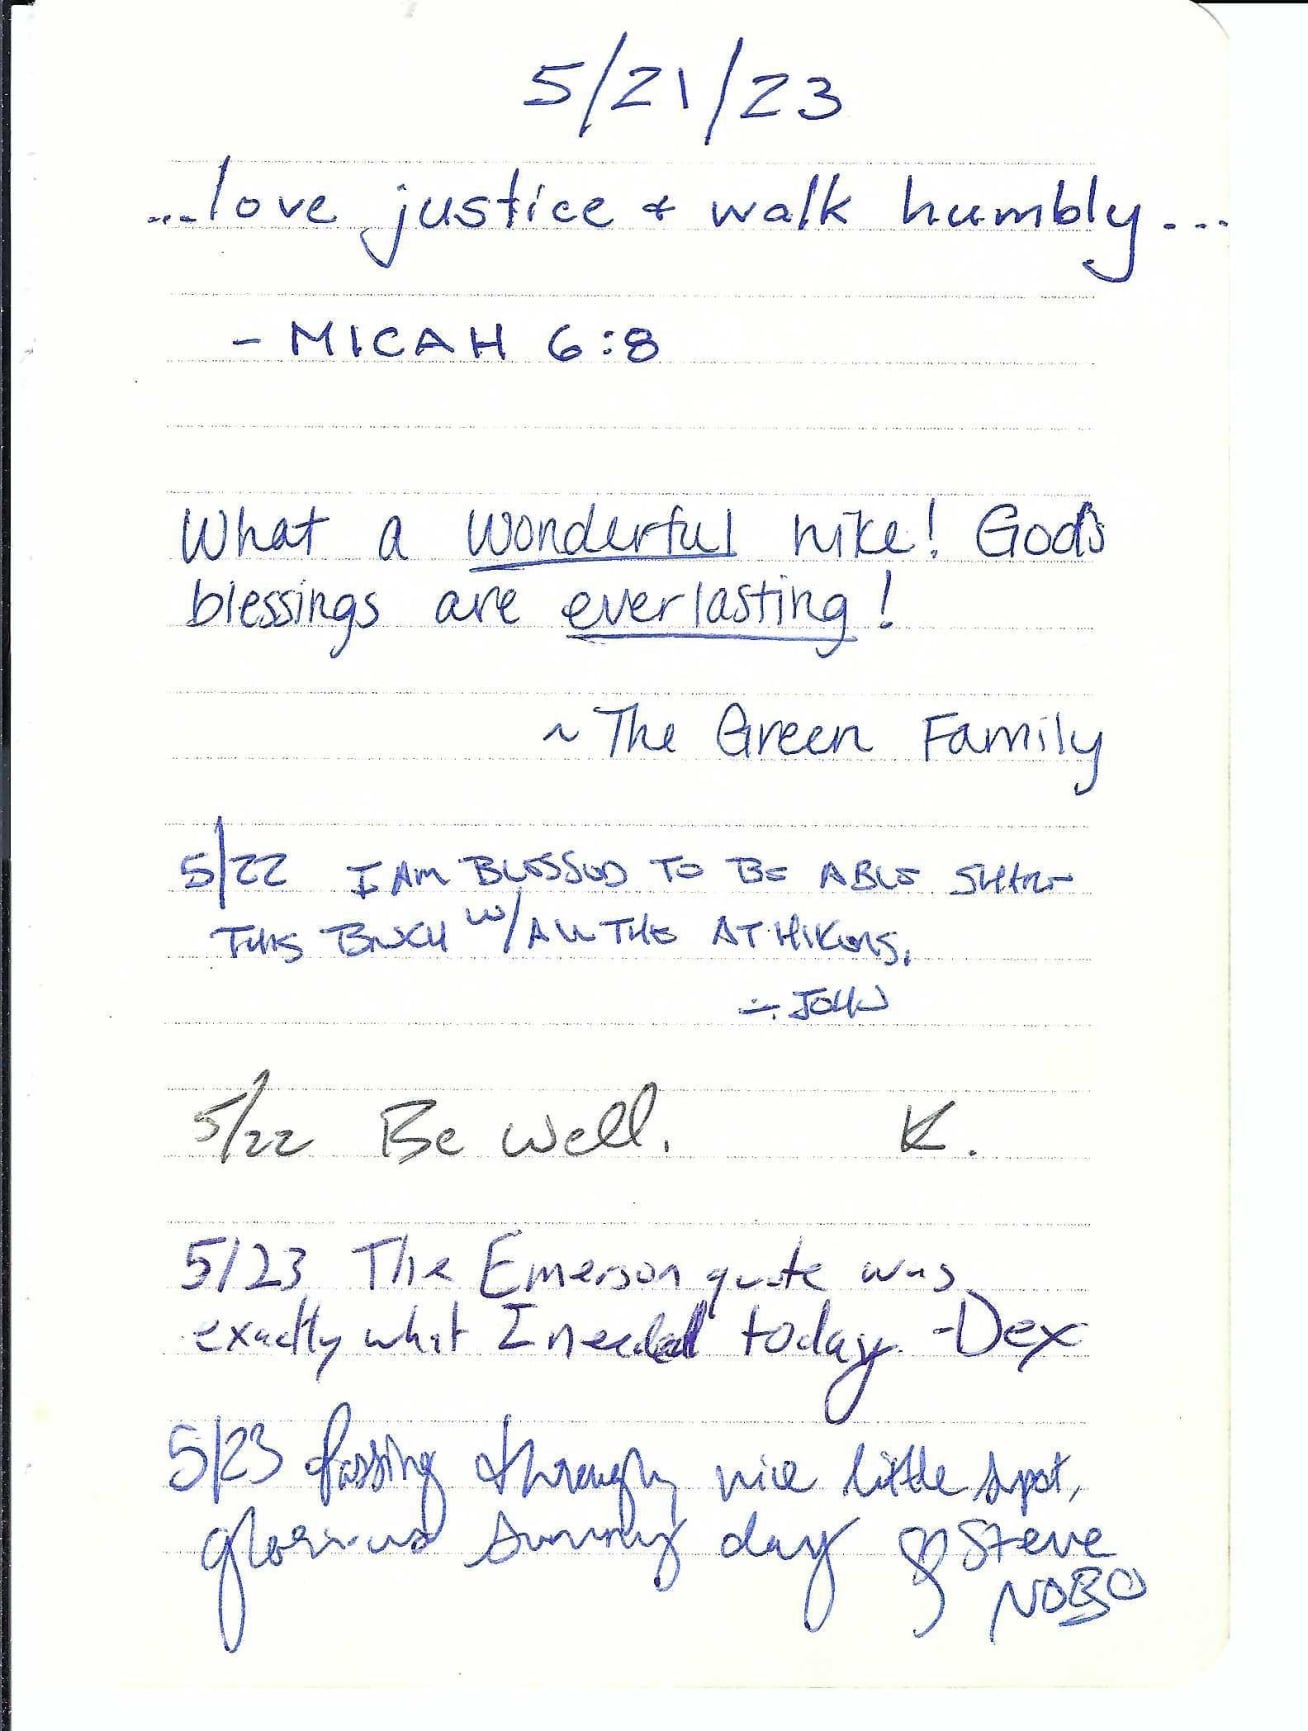 5/21/23
...love justice & walk humbly...
- MICAH 6:8
What a wonderful hike! God's
blessings are everlasting!
~ The Green Family
5/22 I AM BLESSED TO BE ABLE SHARE
THIS BENCH W/ ALL THE AT HIKERS.
- JOHN
5/22 Be well. K.
5/23 The Emerson quote was
exactly what I needed today. -Dex
5/23 Passing through, nice little spot,
glorious sunny day Steve
NOBO